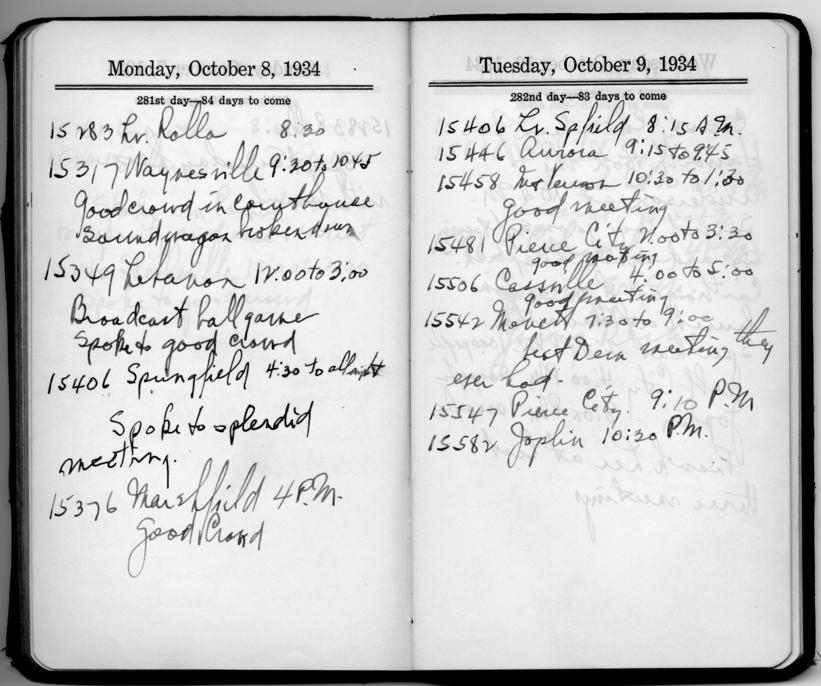 Monday, October 8, 1934
281st day—84 days to come
15283 Lv. Rolla 8:30
15317 Waynesville 9:30 to 10:45
Good crowd in courthouse
Sound wagon broken down
15349 Lebanon 12:00 to 3:00
Broadcast ball game
Spoke to good crowd
15406 Springfield 4:30 to all night
Spoke to splendid
meeting.
15376 Marshfield 4 P.M.
Good Crowd
Tuesday, October 9, 1934
282nd day—83 days to come
15406 Lv. Spfield 8:15 A.M.
15446 Aurora 9:15 to 9:45
15458 Mt Vernon 10:30 to 1:30
Good meeting
15481 Pierce City 2:00 to 3:30
good meeting
15506 Cassville 4:00 to 5:00
good meeting
15542 Monett 7:30 to 9:00
best Dem meeting they
ever had.
15547 Pierce City. 9:10 P.M
15582 Joplin 10:30 P.M.